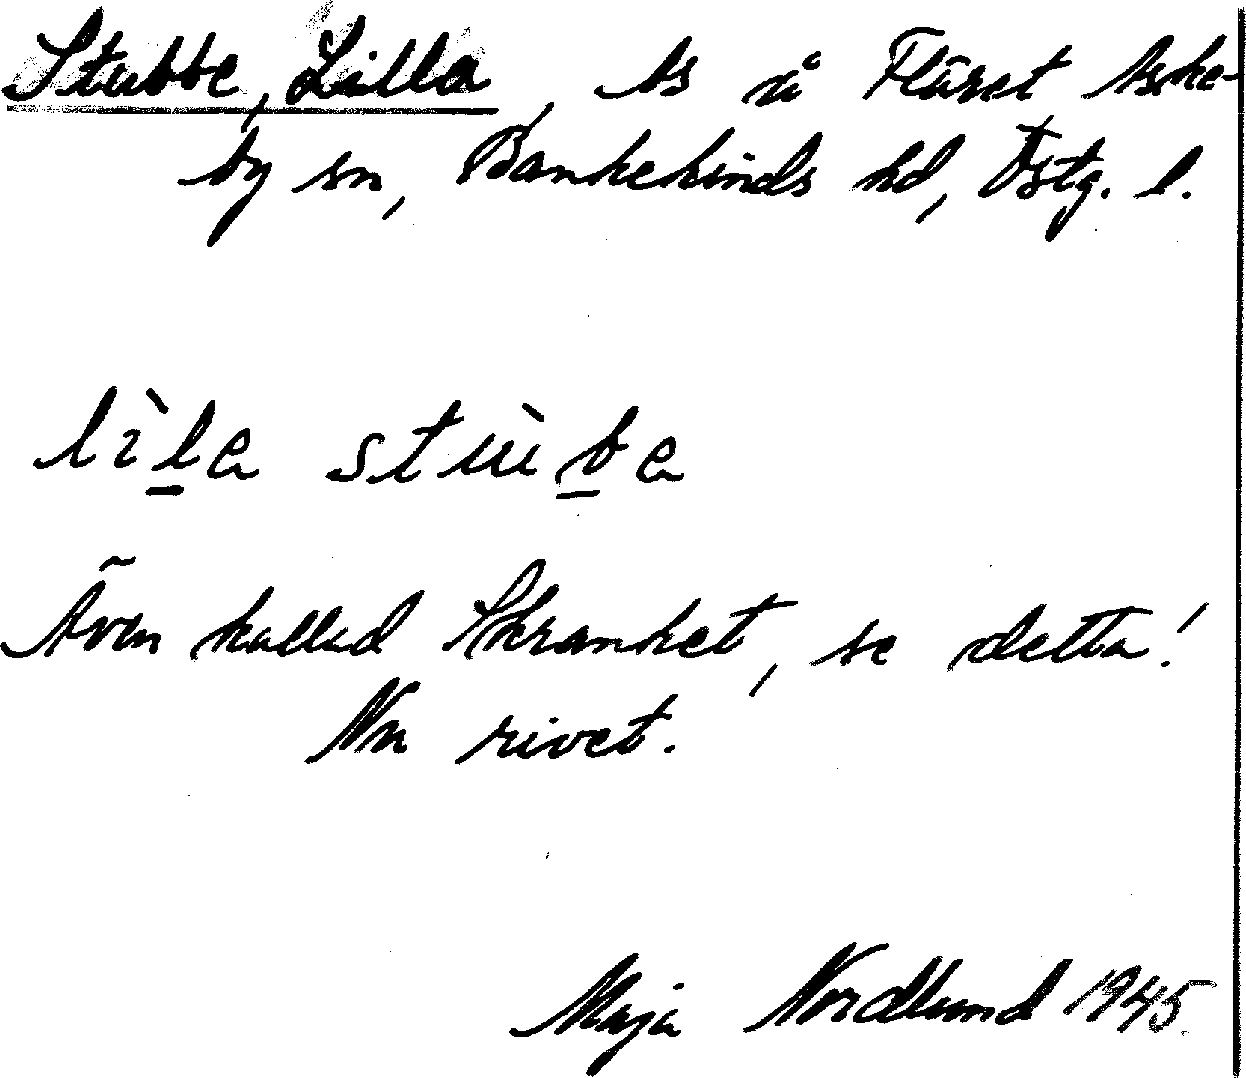 Stubbe, Lilla, ls å Fläret Aske-
by sn, Bankekinds hd, Östg. l.
lìla stùba
Även kallad Skranket, se detta!
Nu rivet.
Maja Nordlund 1945